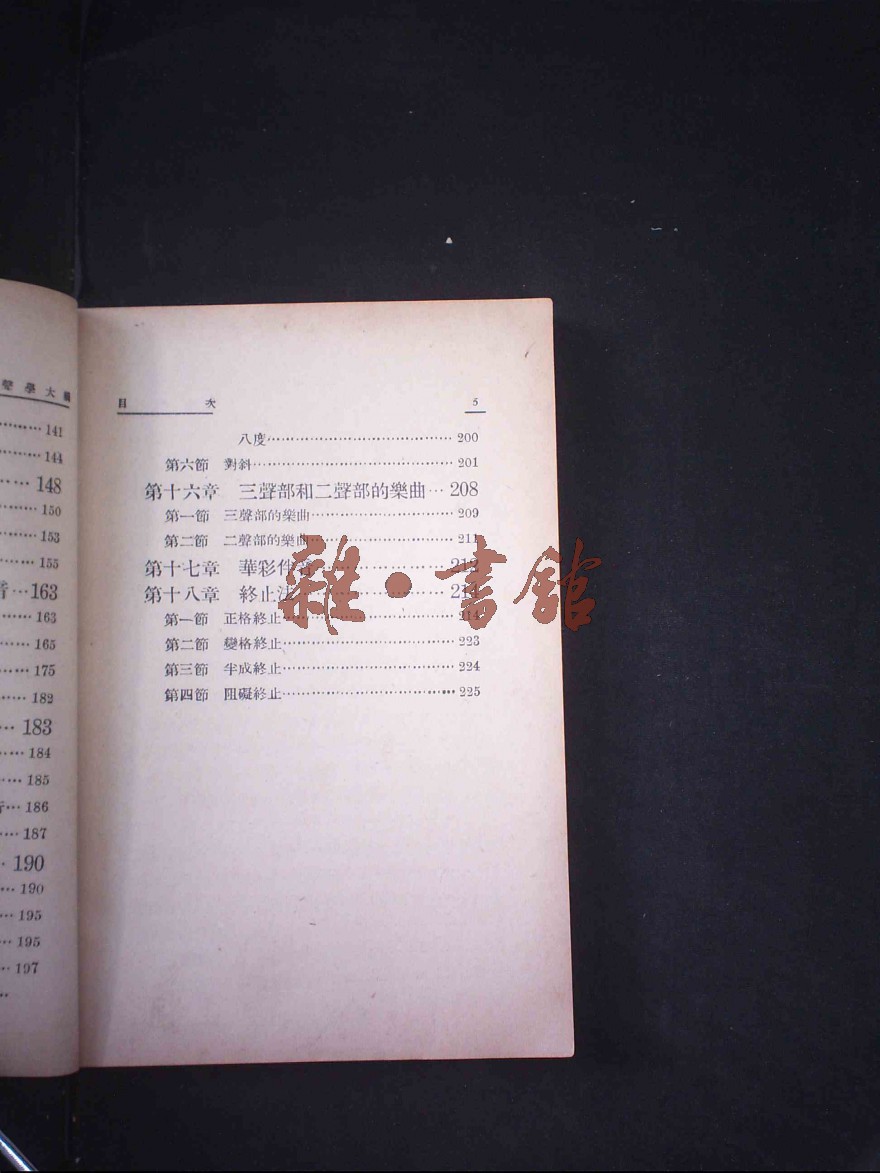 聲學大綱
141
144
148
150
153
155
音…163
163
165
175
182
183
184
185
行…186
187
190
190
195
195
197
目 次 5
八度…200
第六節 對斜…201
第十六章 三聲部和二聲部的樂曲…208
第一節 三聲部的樂曲…209
第二節 二聲部的樂曲…211
第十七章 華彩伴音…212
第十八章 終止法…214
第一節 正格終止…214
第二節 變格終止…223
第三節 半成終止…224
第四節 阻礙終止…225
雜·書館